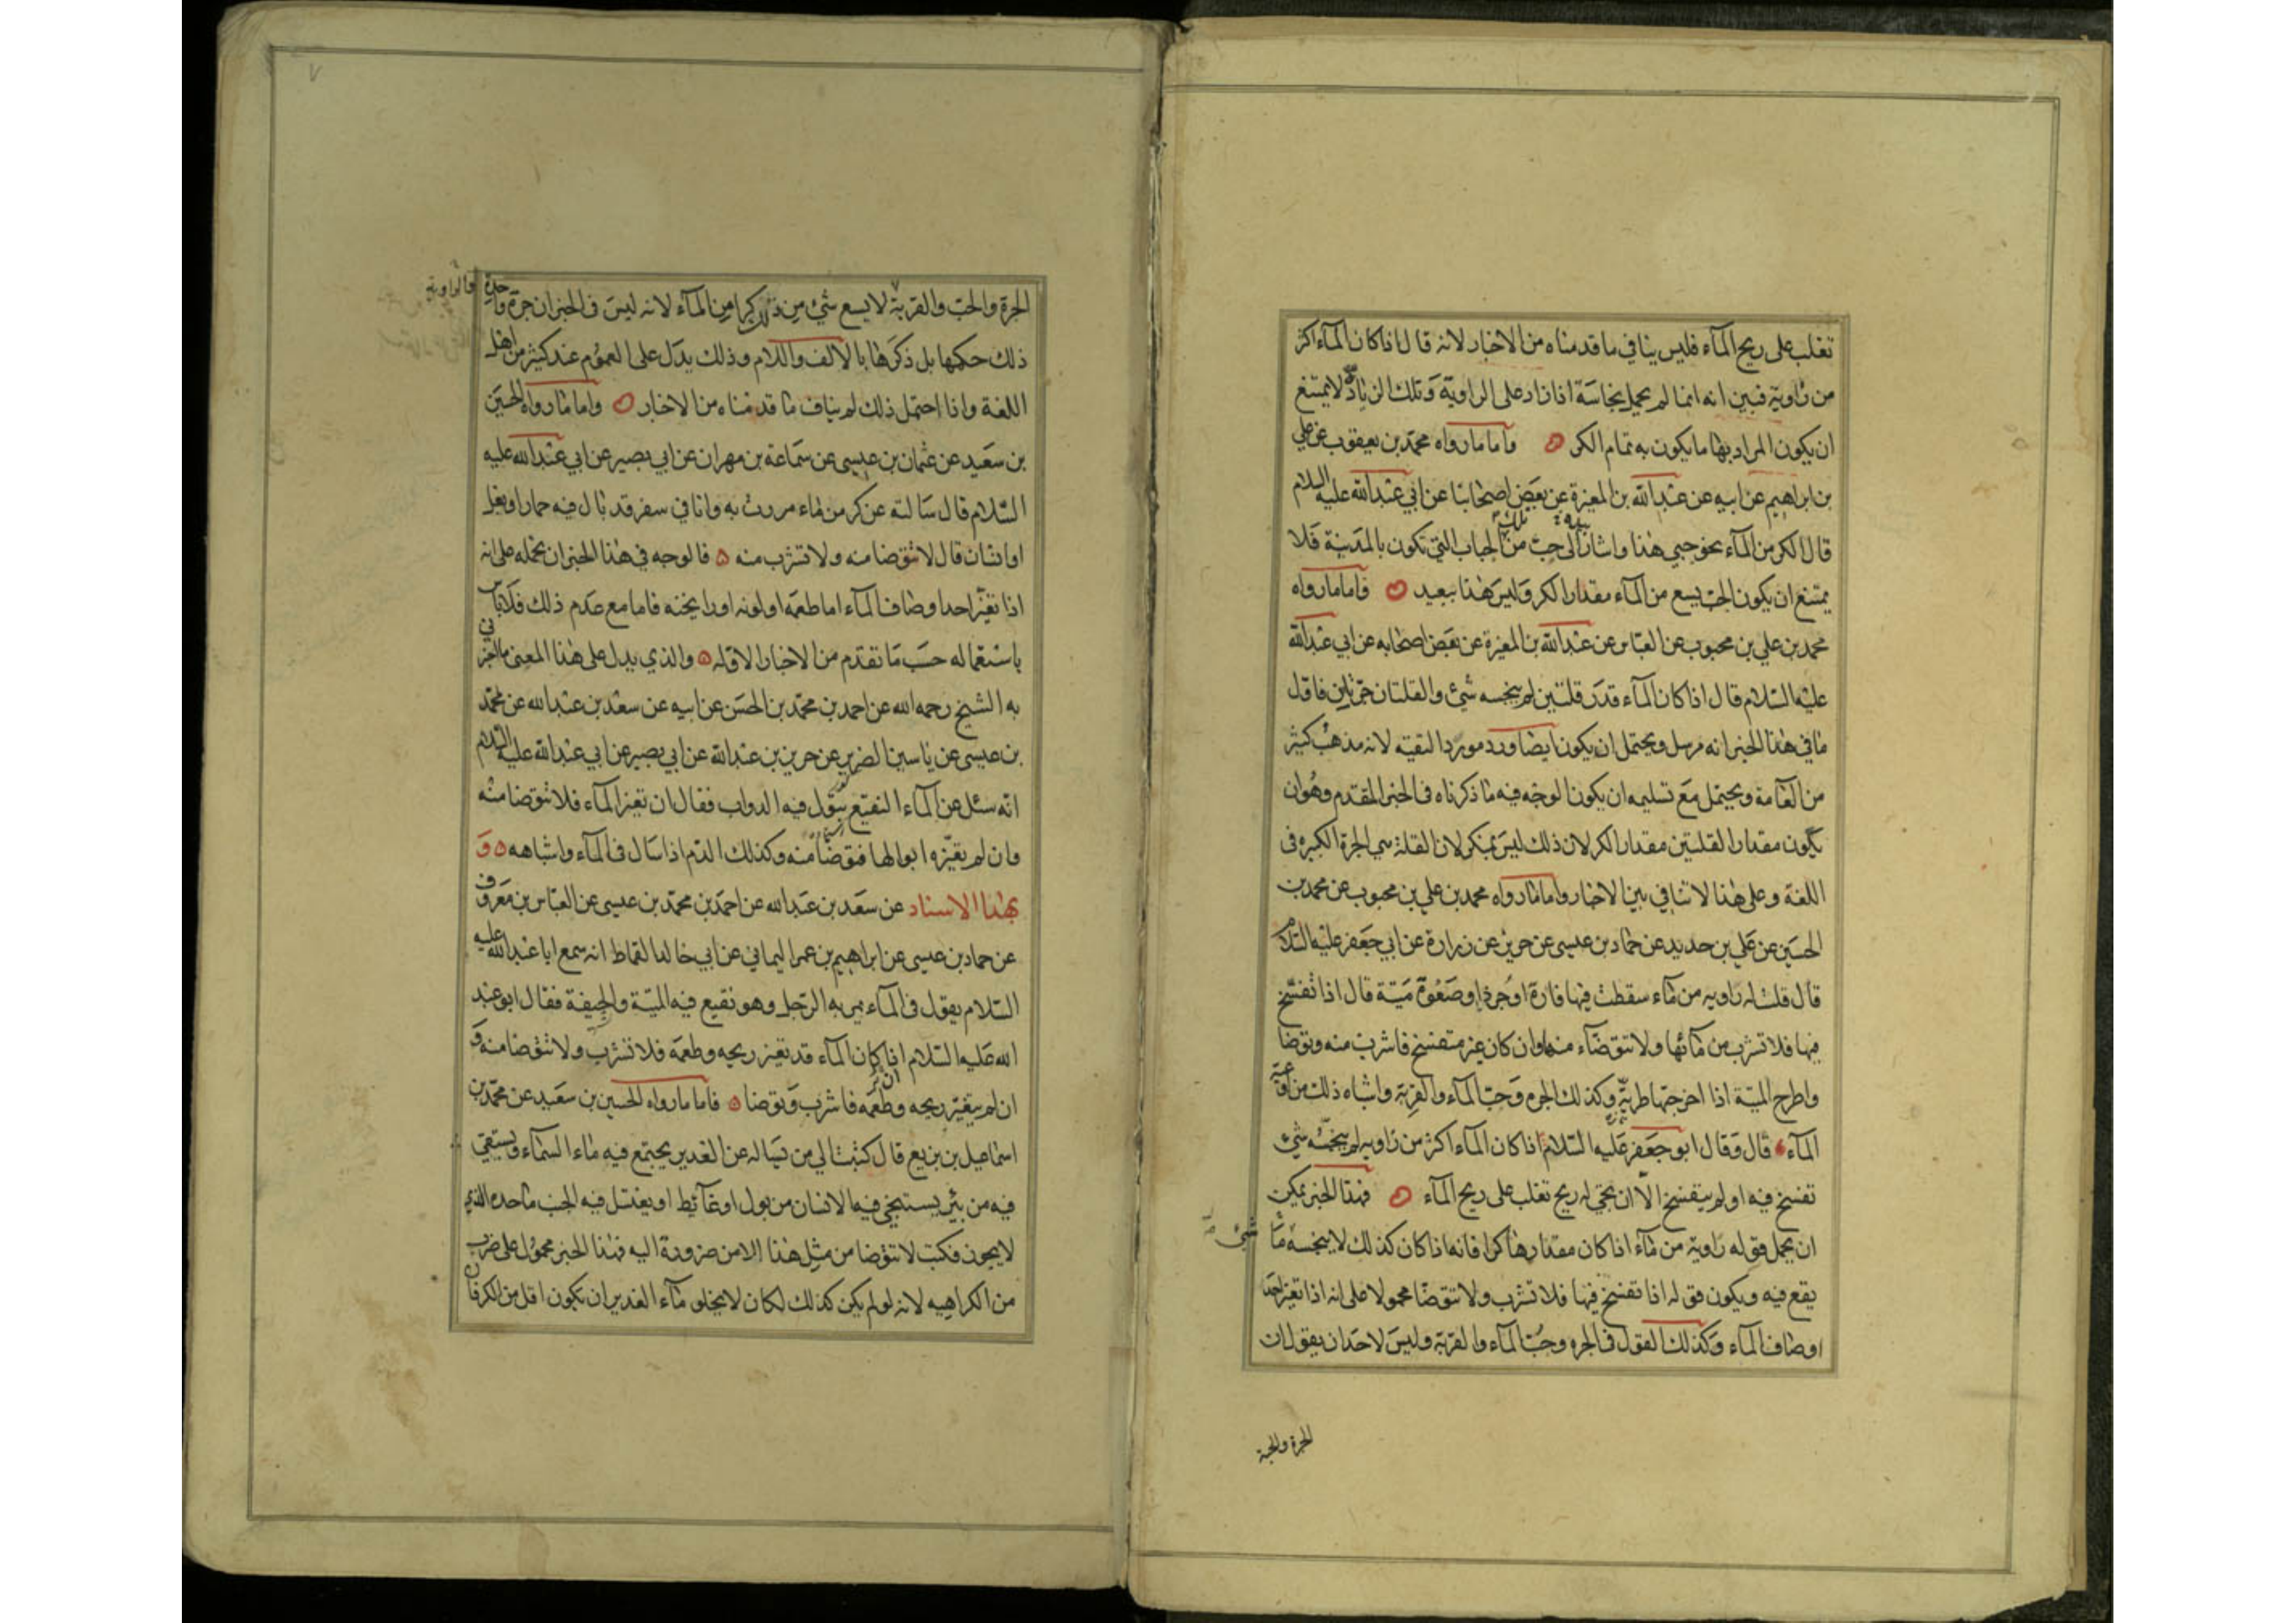 تغلب على ريح المآء فليس ينافي ما قدمناه من الاخبار لانه قال اذا كان المآء اكثر
من راوية فبين انه انما لم يحمل نجاسة اذا زاد على الراوية وتلك الزيادة لا يمتنع
ان يكون المراد بها ما يكون به تمام الكر ۞ فاما ما رواه محمد بن يعقوب عن علي
بن ابراهيم عن ابيه عن عبد الله بن المغيرة عن بعض اصحابنا عن ابي عبد الله عليه السلام
قال الكر من المآء نحو حبي هذا واشار بيده الى حب من تلك الحباب التي تكون بالمدينة فلا
يمتنع ان يكون الحب يسع من المآء مقدار الكر وليس هذا ببعيد ۞ فاما ما رواه
محمد بن علي بن محبوب عن العباس عن عبد الله بن المغيرة عن بعض اصحابه عن ابي عبد الله
عليه السلام قال اذا كان المآء قدر قلتين لم ينجسه شئ والقلتان جرتان فاول
ما في هذا الخبر انه مرسل ويحتمل ان يكون ايضا ورد مورد التقيه لانه مذهب كثير
من العامة ويحتمل مع تسليمه ان يكون الوجه فيه ما ذكرناه في الخبر المقدم وهو ان
يكون مقدار القلتين مقدار الكر لان ذلك ليس بمنكر لان القلة هي الجرة الكبيره في
اللغة وعلى هذا لا تنافي بين الاخبار واما ما رواه محمد بن علي بن محبوب عن محمد بن
الحسين عن علي بن حديد عن حماد بن عيسى عن حريز عن زرارة عن ابي جعفر عليه السلام
قال قلت له راويه من مآء سقطت فيها فارة او جرذ او صعوة ميتة قال اذا تفسخ
فيها فلا تشرب من مآئها ولا تتوضآء منها وان كان غير متفسخ فاشرب منه وتوضا
واطرح الميتة اذا اخرجتها طرية وكذلك الجره وحب المآء والقربة واشباه ذلك من اوعية
المآء ۞ قال وقال ابو جعفر عليه السلام اذا كان المآء اكثر من راويه لم ينجسه شئ
تفسخ فيه او لم يتفسخ الا ان يجئ له ريح تغلب على ريح المآء ۞ فهذا الخبر يمكن
ان يحمل قوله راوية من مآء اذا كان مقدارها كرا فانه اذا كان كذلك لا ينجسه شئ مما
يقع فيه ويكون قوله اذا تفسخ فيها فلا تشرب ولا تتوضا محمولا على انه اذا تغير احد
اوصاف المآء وكذلك القول في الجره وحب المآء والقربة وليس لاحد ان يقول ان
الجرة والحب
٧
الجرة والحب والقربة لا يسع شئ من ذلك كرا من المآء لانه ليس في الخبر ان جرة واحدة والراوية
ذلك حكمها بل ذكرها بالالف واللام وذلك يدل على العموم عند كثير من اهل
اللغة واذا احتمل ذلك لم يناف ما قدمناه من الاخبار ۞ واما ما رواه الحسين
بن سعيد عن عثمان بن عيسى عن سماعة بن مهران عن ابي بصير عن ابي عبد الله عليه
السلام قال سالته عن كر من ماء مررت به وانا في سفر قد بال فيه حمار او بغل
او انسان قال لا تتوضا منه ولا تشرب منه ۞ فالوجه في هذا الخبر ان نحمله على انه
اذا تغير احد اوصاف المآء اما طعمه او لونه او رايحته فاما مع عدم ذلك فلا باس
باستعماله حسب ما تقدم من الاخبار الاوله ۞ والذي يدل على هذا المعنى ما اخبرني
به الشيخ رحمه الله عن احمد بن محمد بن الحسن عن ابيه عن سعد بن عبد الله عن محمد
بن عيسى عن ياسين الضرير عن حريز بن عبد الله عن ابي بصير عن ابي عبد الله عليه السلام
انه سئل عن المآء النقيع تبول فيه الدواب فقال ان تغير المآء فلا تتوضا منه
وان لم يغيره ابوالها فتوضا منه وكذلك الدم اذا سال في المآء واشباهه ۞ و
بهذا الاسناد عن سعد بن عبد الله عن احمد بن محمد بن عيسى عن العباس بن معروف
عن حماد بن عيسى عن ابراهيم بن عمر اليماني عن ابي خالد القماط انه سمع ابا عبد الله عليه
السلام يقول في المآء يمر به الرجل وهو نقيع فيه الميتة والجيفة فقال ابو عبد
الله عليه السلام اذا كان المآء قد تغير ريحه وطعمه فلا تشرب ولا تتوضا منه و
ان لم يتغير ريحه وطعمه فاشرب وتوضا ۞ فاما ما رواه الحسين بن سعيد عن محمد بن
اسماعيل بن بزيع قال كتبت الي من يساله عن الغدير يجتمع فيه ماء السماء ويستقي
فيه من بئر يستنجي فيه الانسان من بول او غآئط او يغتسل فيه الجنب ما حده الذي
لا يجوز فكتب لا تتوضا من مثل هذا الا من ضرورة اليه فهذا الخبر محمول على ضرب
من الكراهيه لانه لو لم يكن كذلك لكان لا يخلو مآء الغدير ان يكون اقل من الكر فان